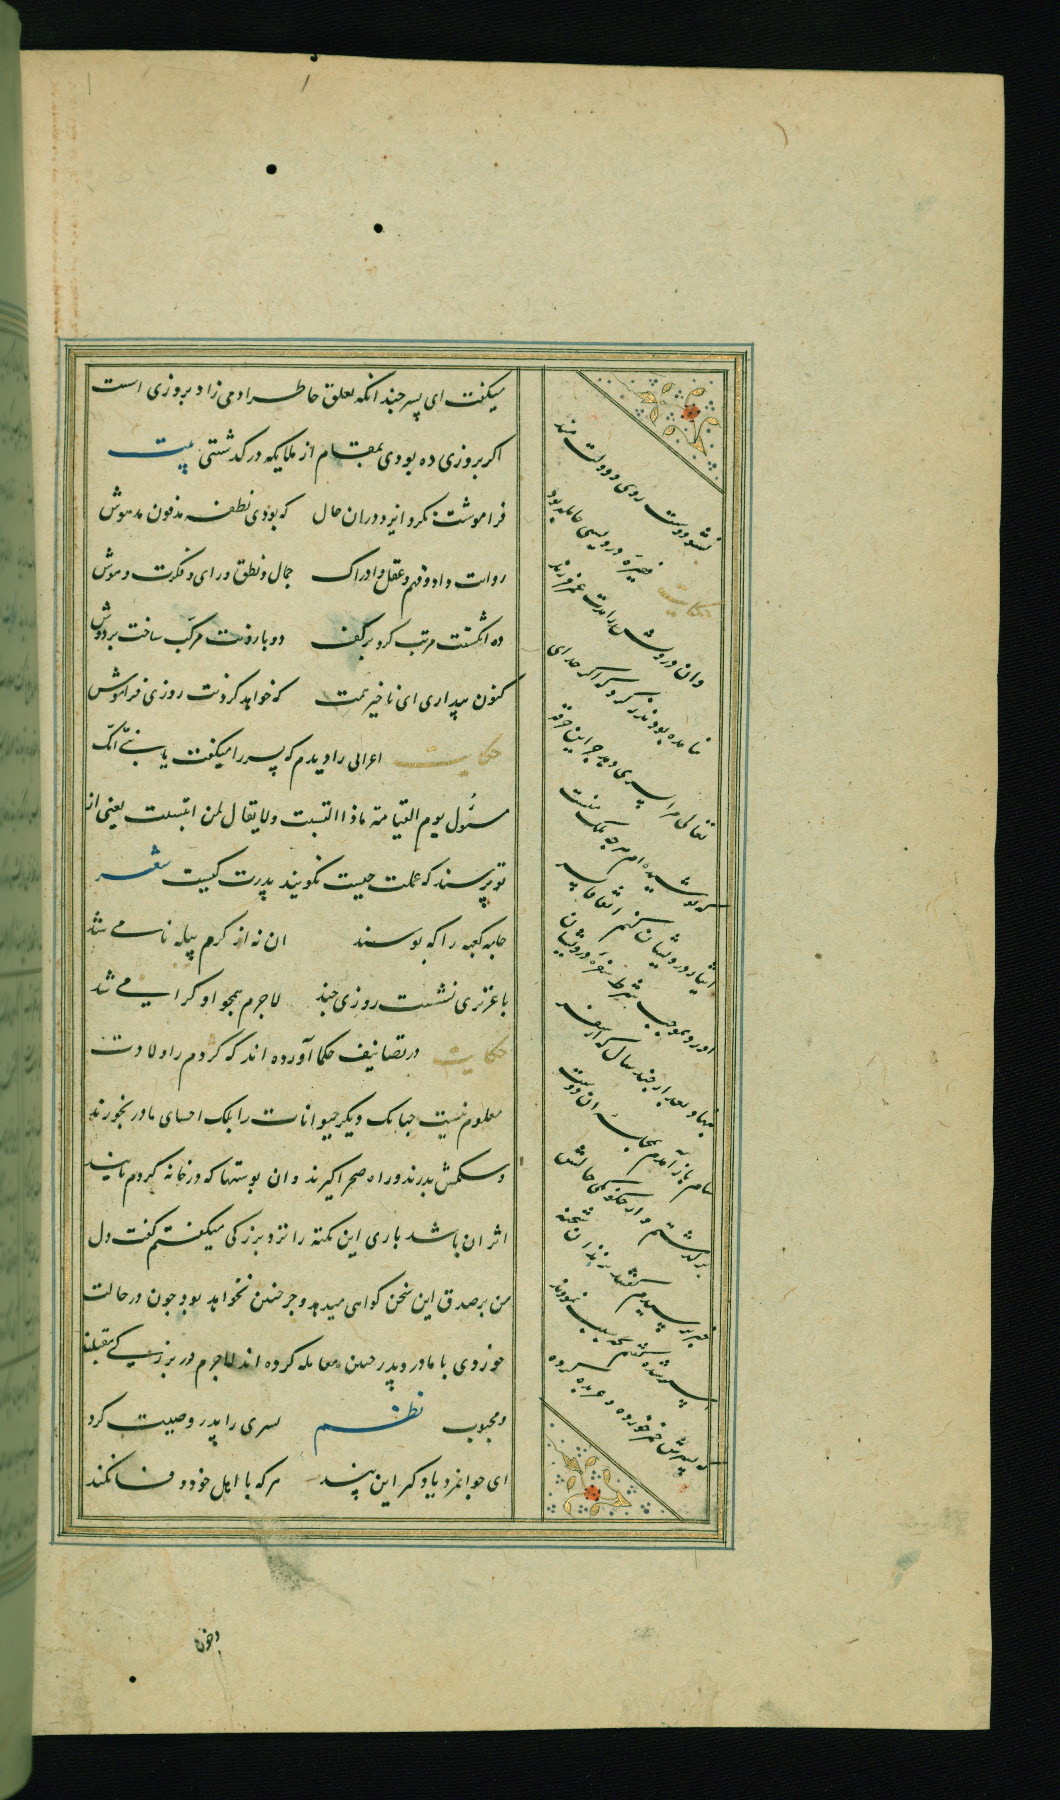 میکفت ای پسر چندانکه تعلق خاطر ادمی زاد بروزی است
اکر بروزی ده بودی بمقام از ملایکه درکدشتی بیت
فراموشت نکرد ایزد دران حال که بودی نطفه مدفون مدهوش
روانت داد و فهم و عقل و ادراک جمال و نطق و رای و فکرت و هوش
ده انکشتت مرتب کرد بر کف دو بازوت مرکّب ساخت بر دوش
کنون پنداری ای ناخیر همت که خواهد کردنت روزی فراموش
حکایت اعرابی را دیدم که پسر را میکفت یا بنیّ انک
مسئول یوم القیامة ماذا اکتسبت ولا یقال لمن انتسبت یعنی از
تو پرسند که عملت چیست نکویند پدرت کیست شعر
جامه کعبه را که بوسند ان نه از کرم پیله نامی شد
با عزیزی نشست روزی چند لاجرم همچو او کرامی شد
حکایت در تصانیف حکما آورده اند که کژدم را ولادت
معلوم نیست چنانک دیکر حیوانات را بلک احشای مادر بخورند
و شکمش بدرند و راه صحرا کیرند و ان پوستها که در خانه کژدم بینند
اثر ان باشد باری این نکته را نزد بزرکی میکفتم کفت دل
من بر صدق این سخن کواهی میدهد و جز چنین نخواهد بود چون در حالت
خوردی با مادر و پدر چنین معامله کرده اند لاجرم در بزرکی مقبلند
و محبوب نظم پسری را پدر وصیت کرد
ای جوانمرد یاد کیر این پند هرکه با اهل خود وفا نکند
نشود دوست روی و دولت مند
حکایت فقیره درویشی حامله بود
وان درویش را مدت عمر فرزند
نامده بود نذر کرد که اکر خدای
تعالی مرا پسری دهد جز این خرقه
که پوشیده ام هرچه ملک منست
ایثار درویشان کنم اتفاقا پسر
اورد و بموجب شرط سفره درویشان
بنهاد بعد از چند سال که از سفر
شام باز آمدم بمحله ان دوست
برکذشتم و از چکونکی حالش
خبر پرسیدم کفتند بزندان شحنه
پسرش خمر خورده و عربده کرده